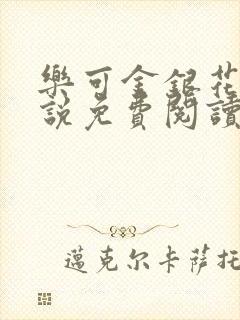 樂可金銀花
說免費閱讀
邁克尔卡萨托